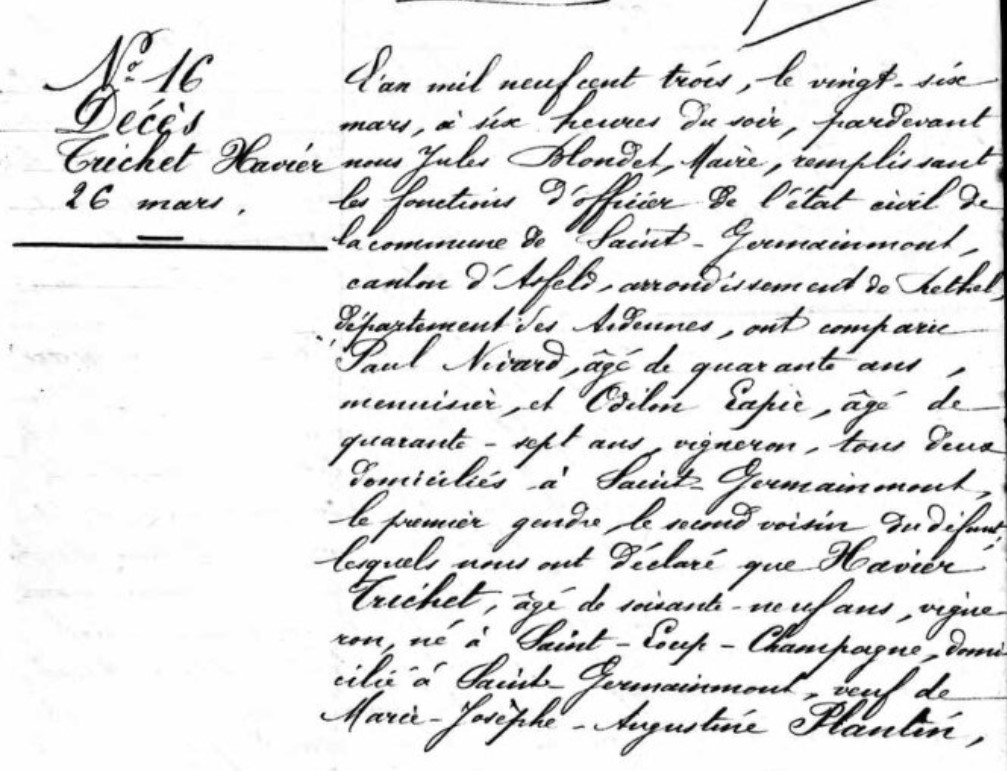 N° 16
Décès
Trichet Xavier
26 mars.
L'an mil neuf cent trois, le vingt-six
mars, à six heures du soir, pardevant
nous Jules Blondet, Maire, remplissant
les fonctions d'officier de l'état civil de
la commune de Saint-Germainmont,
canton d'Asfeld, arrondissement de Rethel,
département des Ardennes, ont comparu
Paul Nivard, âgé de quarante ans,
menuisier, et Odilon Lapie, âgé de
quarante-sept ans, vigneron, tous deux
domiciliés à Saint-Germainmont,
le premier gendre, le second voisin du défunt,
lesquels nous ont déclaré que Xavier
Trichet, âgé de soixante-neuf ans, vigne
ron, né à Saint-Loup-Champagne, domi
cilié à Saint-Germainmont, veuf de
Marie-Josèphe-Augustine Plantin,